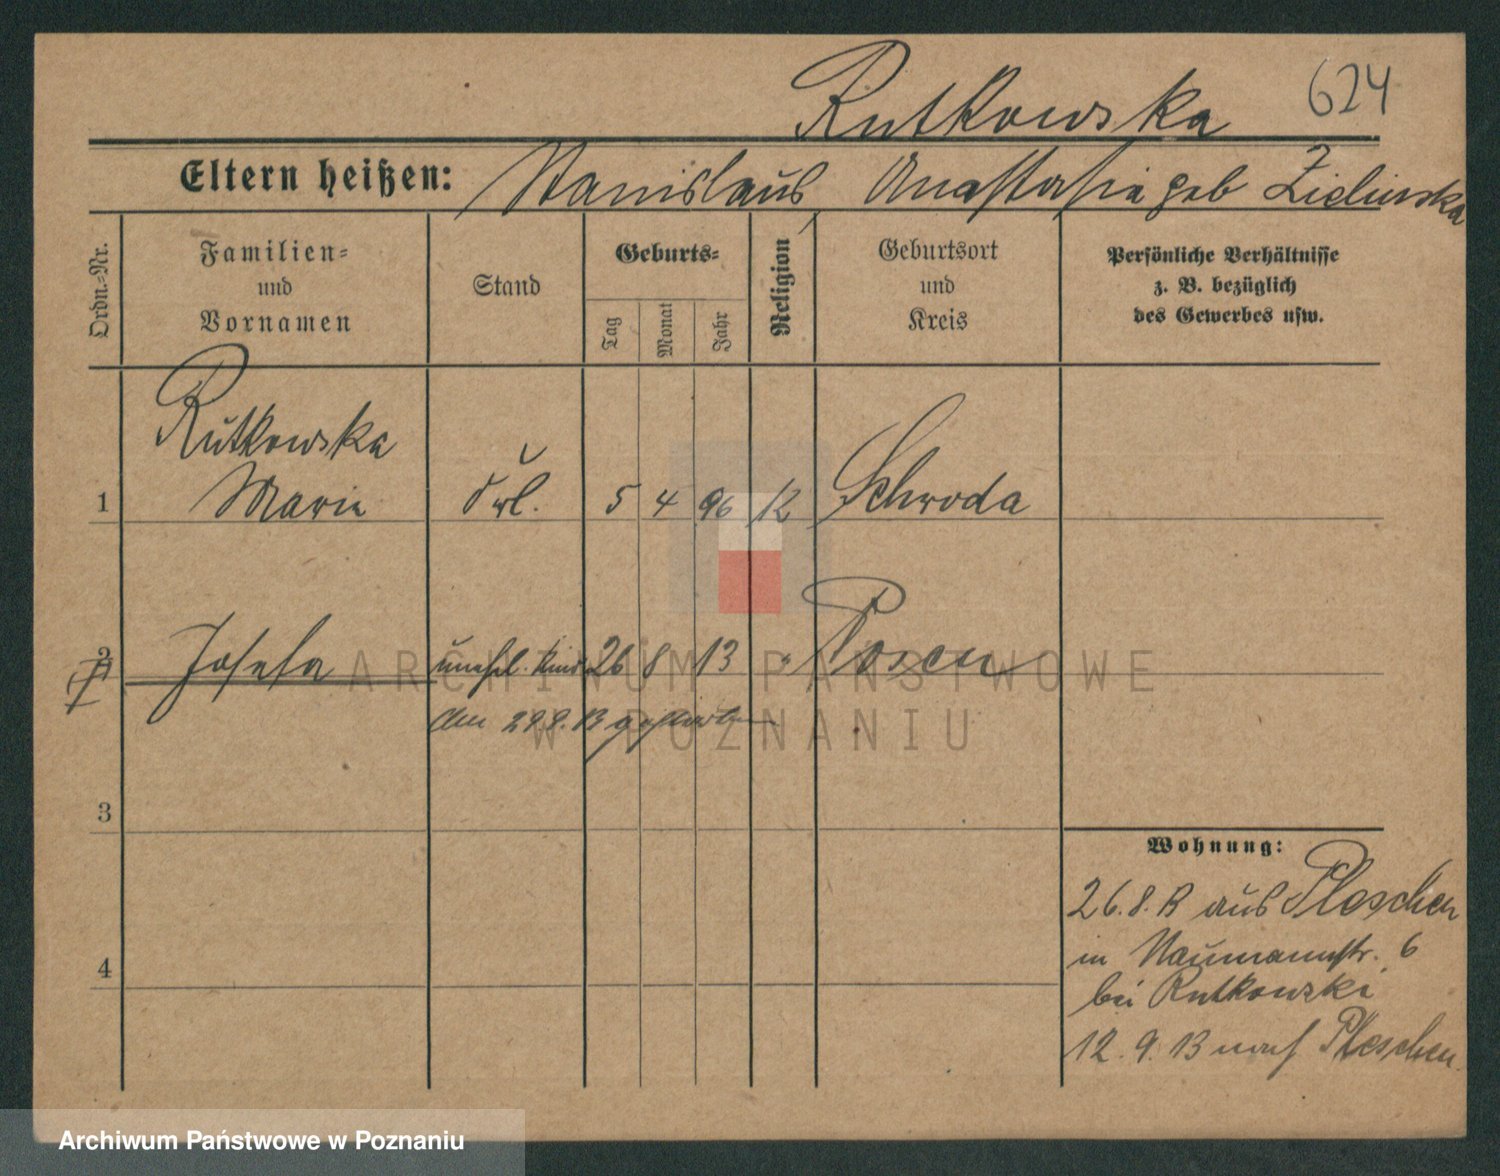 Rutkowska 624
Eltern heißen: Stanislaus Anastasie geb Zielinska
Ordn.-Nr.
Familien-
und
Vornamen
Stand
Geburts-
Tag
Monat
Jahr
Religion
Geburtsort
und
Kreis
Persönliche Verhältnisse
z. B. bezüglich
des Gewerbes usw.
Rutkowska
1 Marie 5 4 96 K Schroda
2 Josefa unehel. Kind 26 8 13 " Posen
den 29.8.13 gestorben
3
4
Wohnung:
26.8.13 aus Pleschen
in Naumannstr. 6
bei Rutkowski
12.9.13 nach Pleschen.
ARCHIWUM PAŃSTWOWE
W POZNANIU
Archiwum Państwowe w Poznaniu